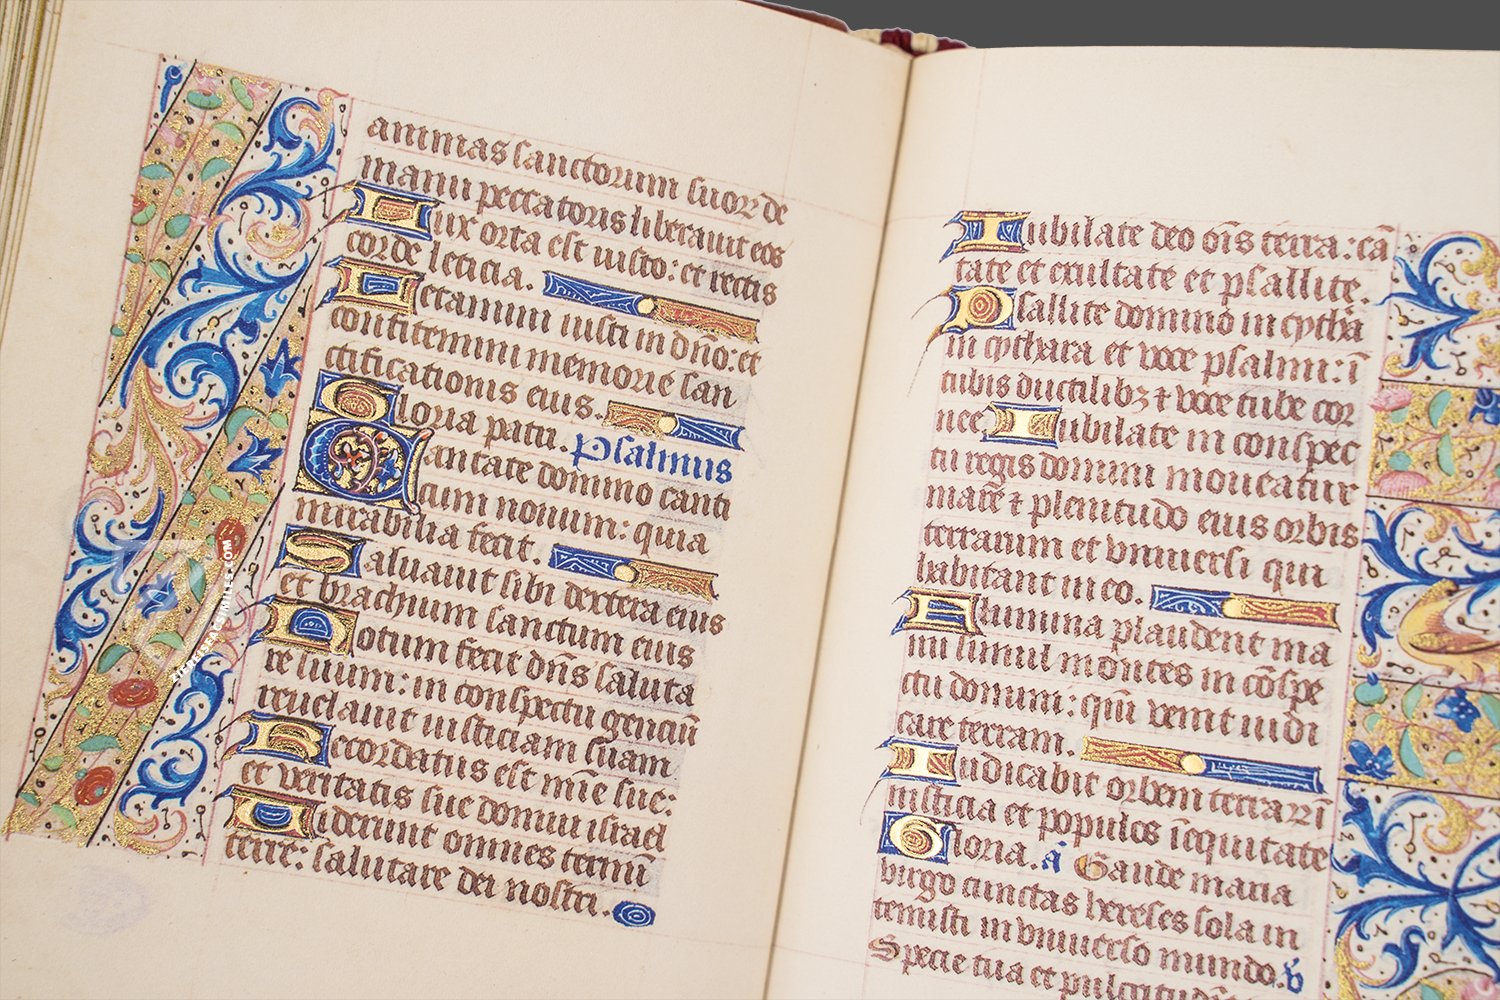 animas sanctorum suor de
manu peccatoris liberauit eos
Lux orta est iusto: et rectis
corde leticia.
Letamini iusti in dño: et
confitemini memorie san
ctificationis eius.
Gloria patri. Psalmus
Cantate domino canti
cum nouum: quia
mirabilia fecit.
Saluauit sibi dextera eius
et brachium sanctum eius
Notum fecit dñs saluta
re suum: in conspectu genciū
reuelauit iusticiam suam
Recordatus est mīe sue:
et veritatis sue domui israel
Uiderunt omnes termīi
terre: salutare dei nostri.
Iubilate deo oīs terra: cā
tate et exultate et psallite.
Psallite domino in cythā
in cythara et voce psalmi: ī
tubis ductilibꝫ ⁊ voce tube cor
nee Iubilate in conspec
tu regis domini moueatur
marē ⁊ plenitudo eius orbis
terrarum et vniuersi qui
habitant in eo.
Flumina plaudent ma
nu simul montes in cōspe
ctu domini: qm̄ venit iudi
care terram.
Iudicabit orbem terrarū ī
iusticia et populos ī equitate
Gloria. ā Gaude maria
virgo cunctas hereses sola in
temisti in vniuerso mundo. v̄
Specie tua et pulcritudīe
FACSIMILES.COM